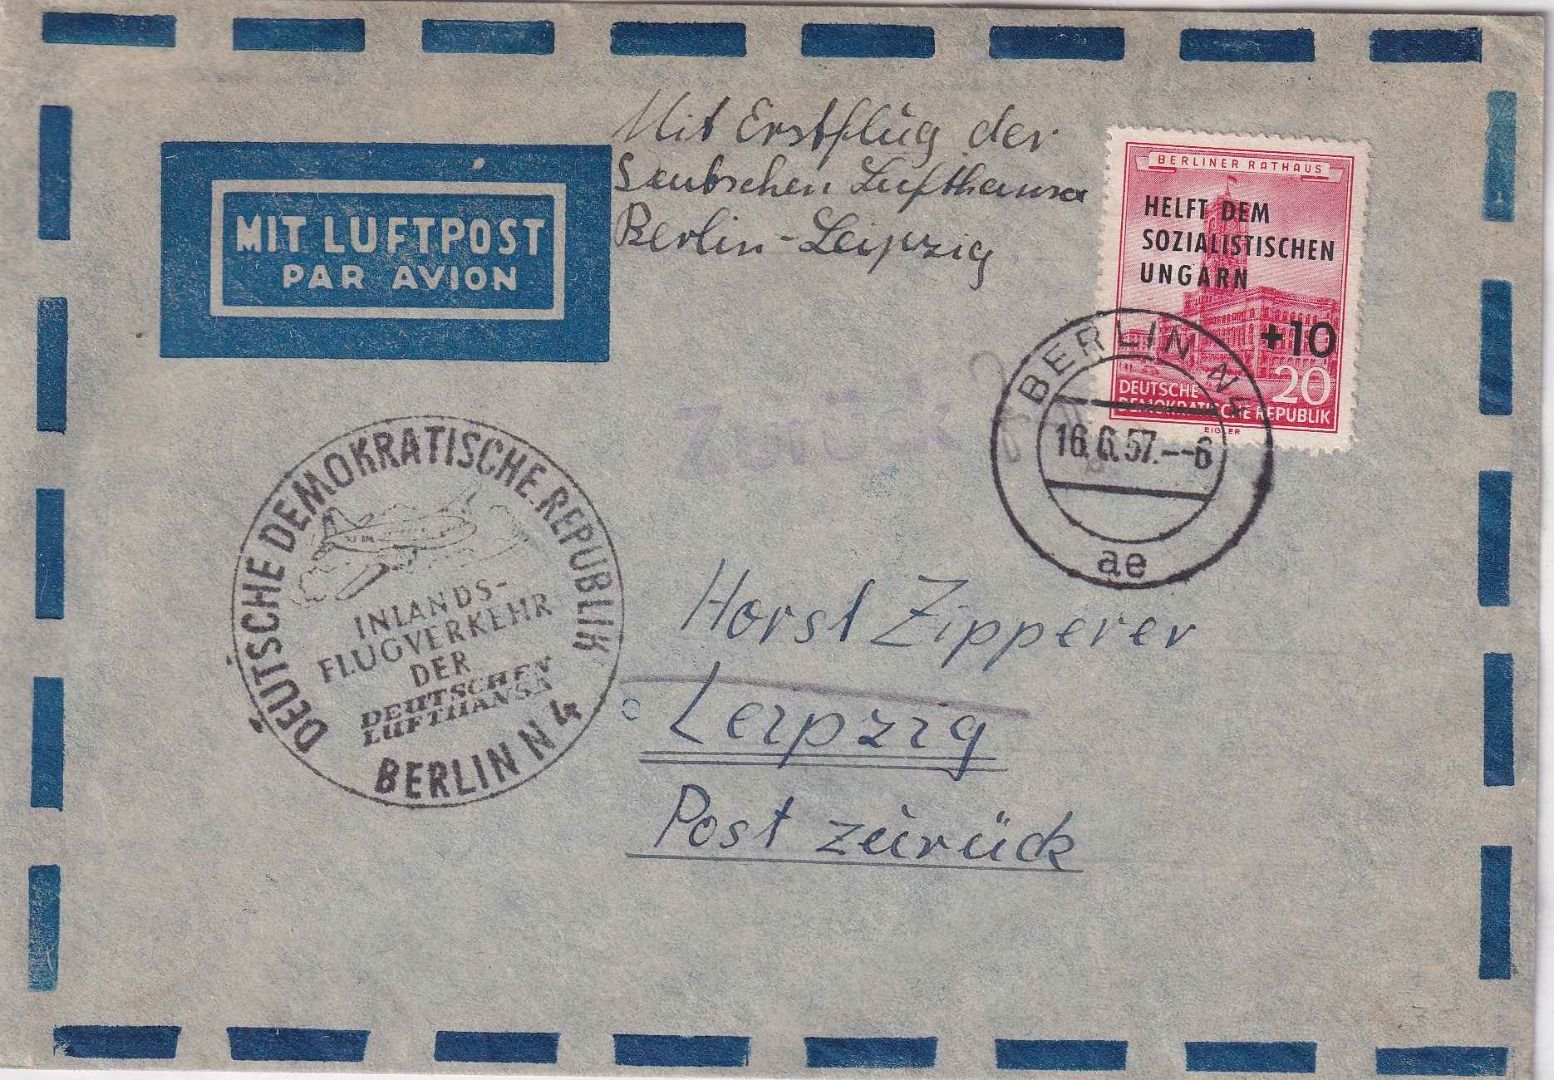 Mit Erstflug der
Deutschen Lufthansa
Berlin-Leipzig
MIT LUFTPOST
PAR AVION
BERLINER RATHAUS
HELFT DEM
SOZIALISTISCHEN
UNGARN
+10
20
DEUTSCHE
DEMOKRATISCHE REPUBLIK
EIGLER
BERLIN
16.6.57.--6
ae
Zurück
DEUTSCHE DEMOKRATISCHE REPUBLIK
INLANDS-
FLUGVERKEHR
DER
DEUTSCHEN
LUFTHANSA
BERLIN N 4
Horst Zipperer
Leipzig
Post zurück